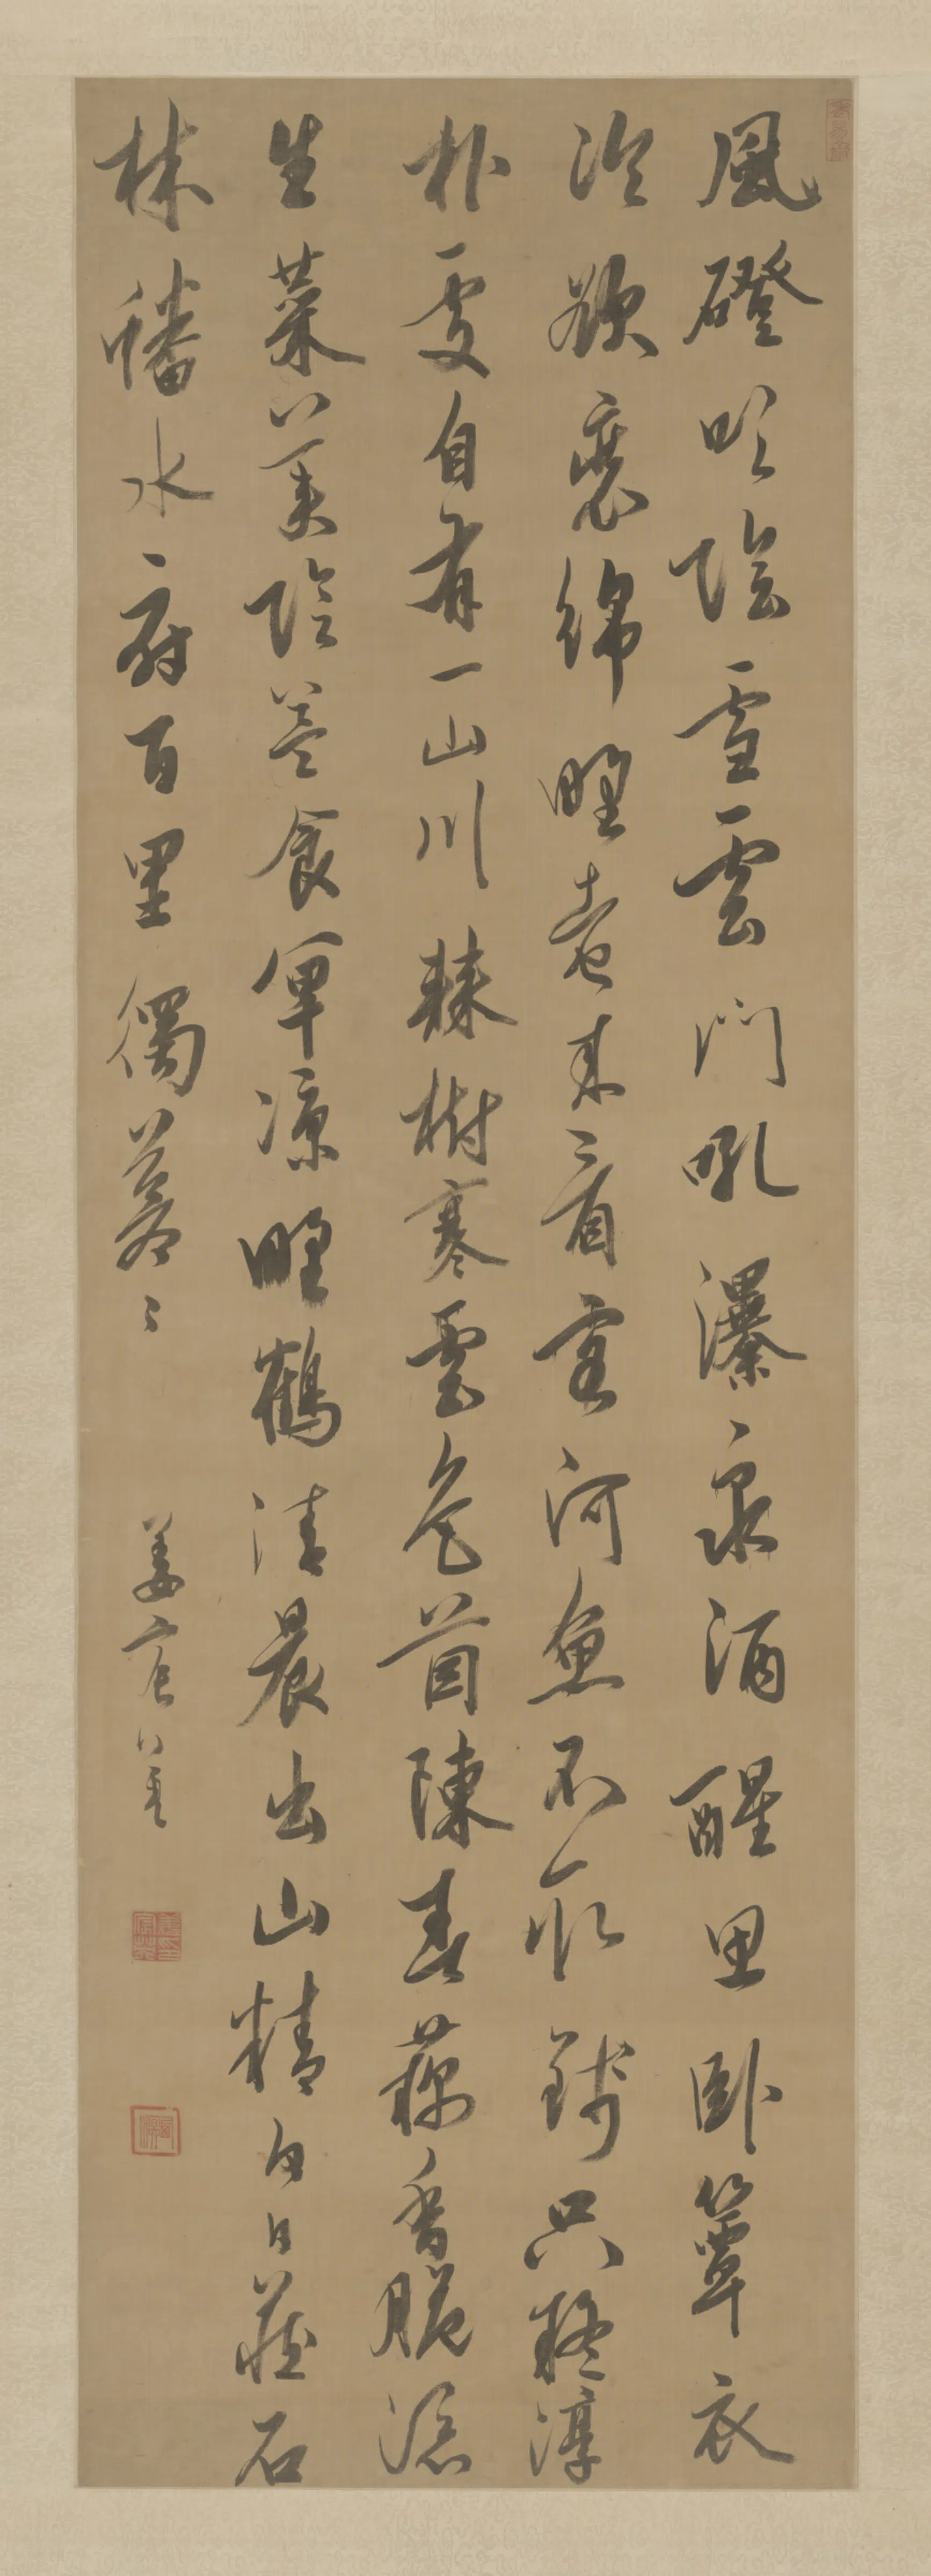 風磴吹陰雪雲門吼瀑泉酒醒思臥簟衣
冷欲裝綿野老來看客河魚不取錢只疑淳
朴處自有一山川棘樹寒雲色茵陳春藕香脆添
生菜美陰益食單涼野鶴清晨出山精白日藏石
林蟠水府百里獨蒼〻
姜宸英